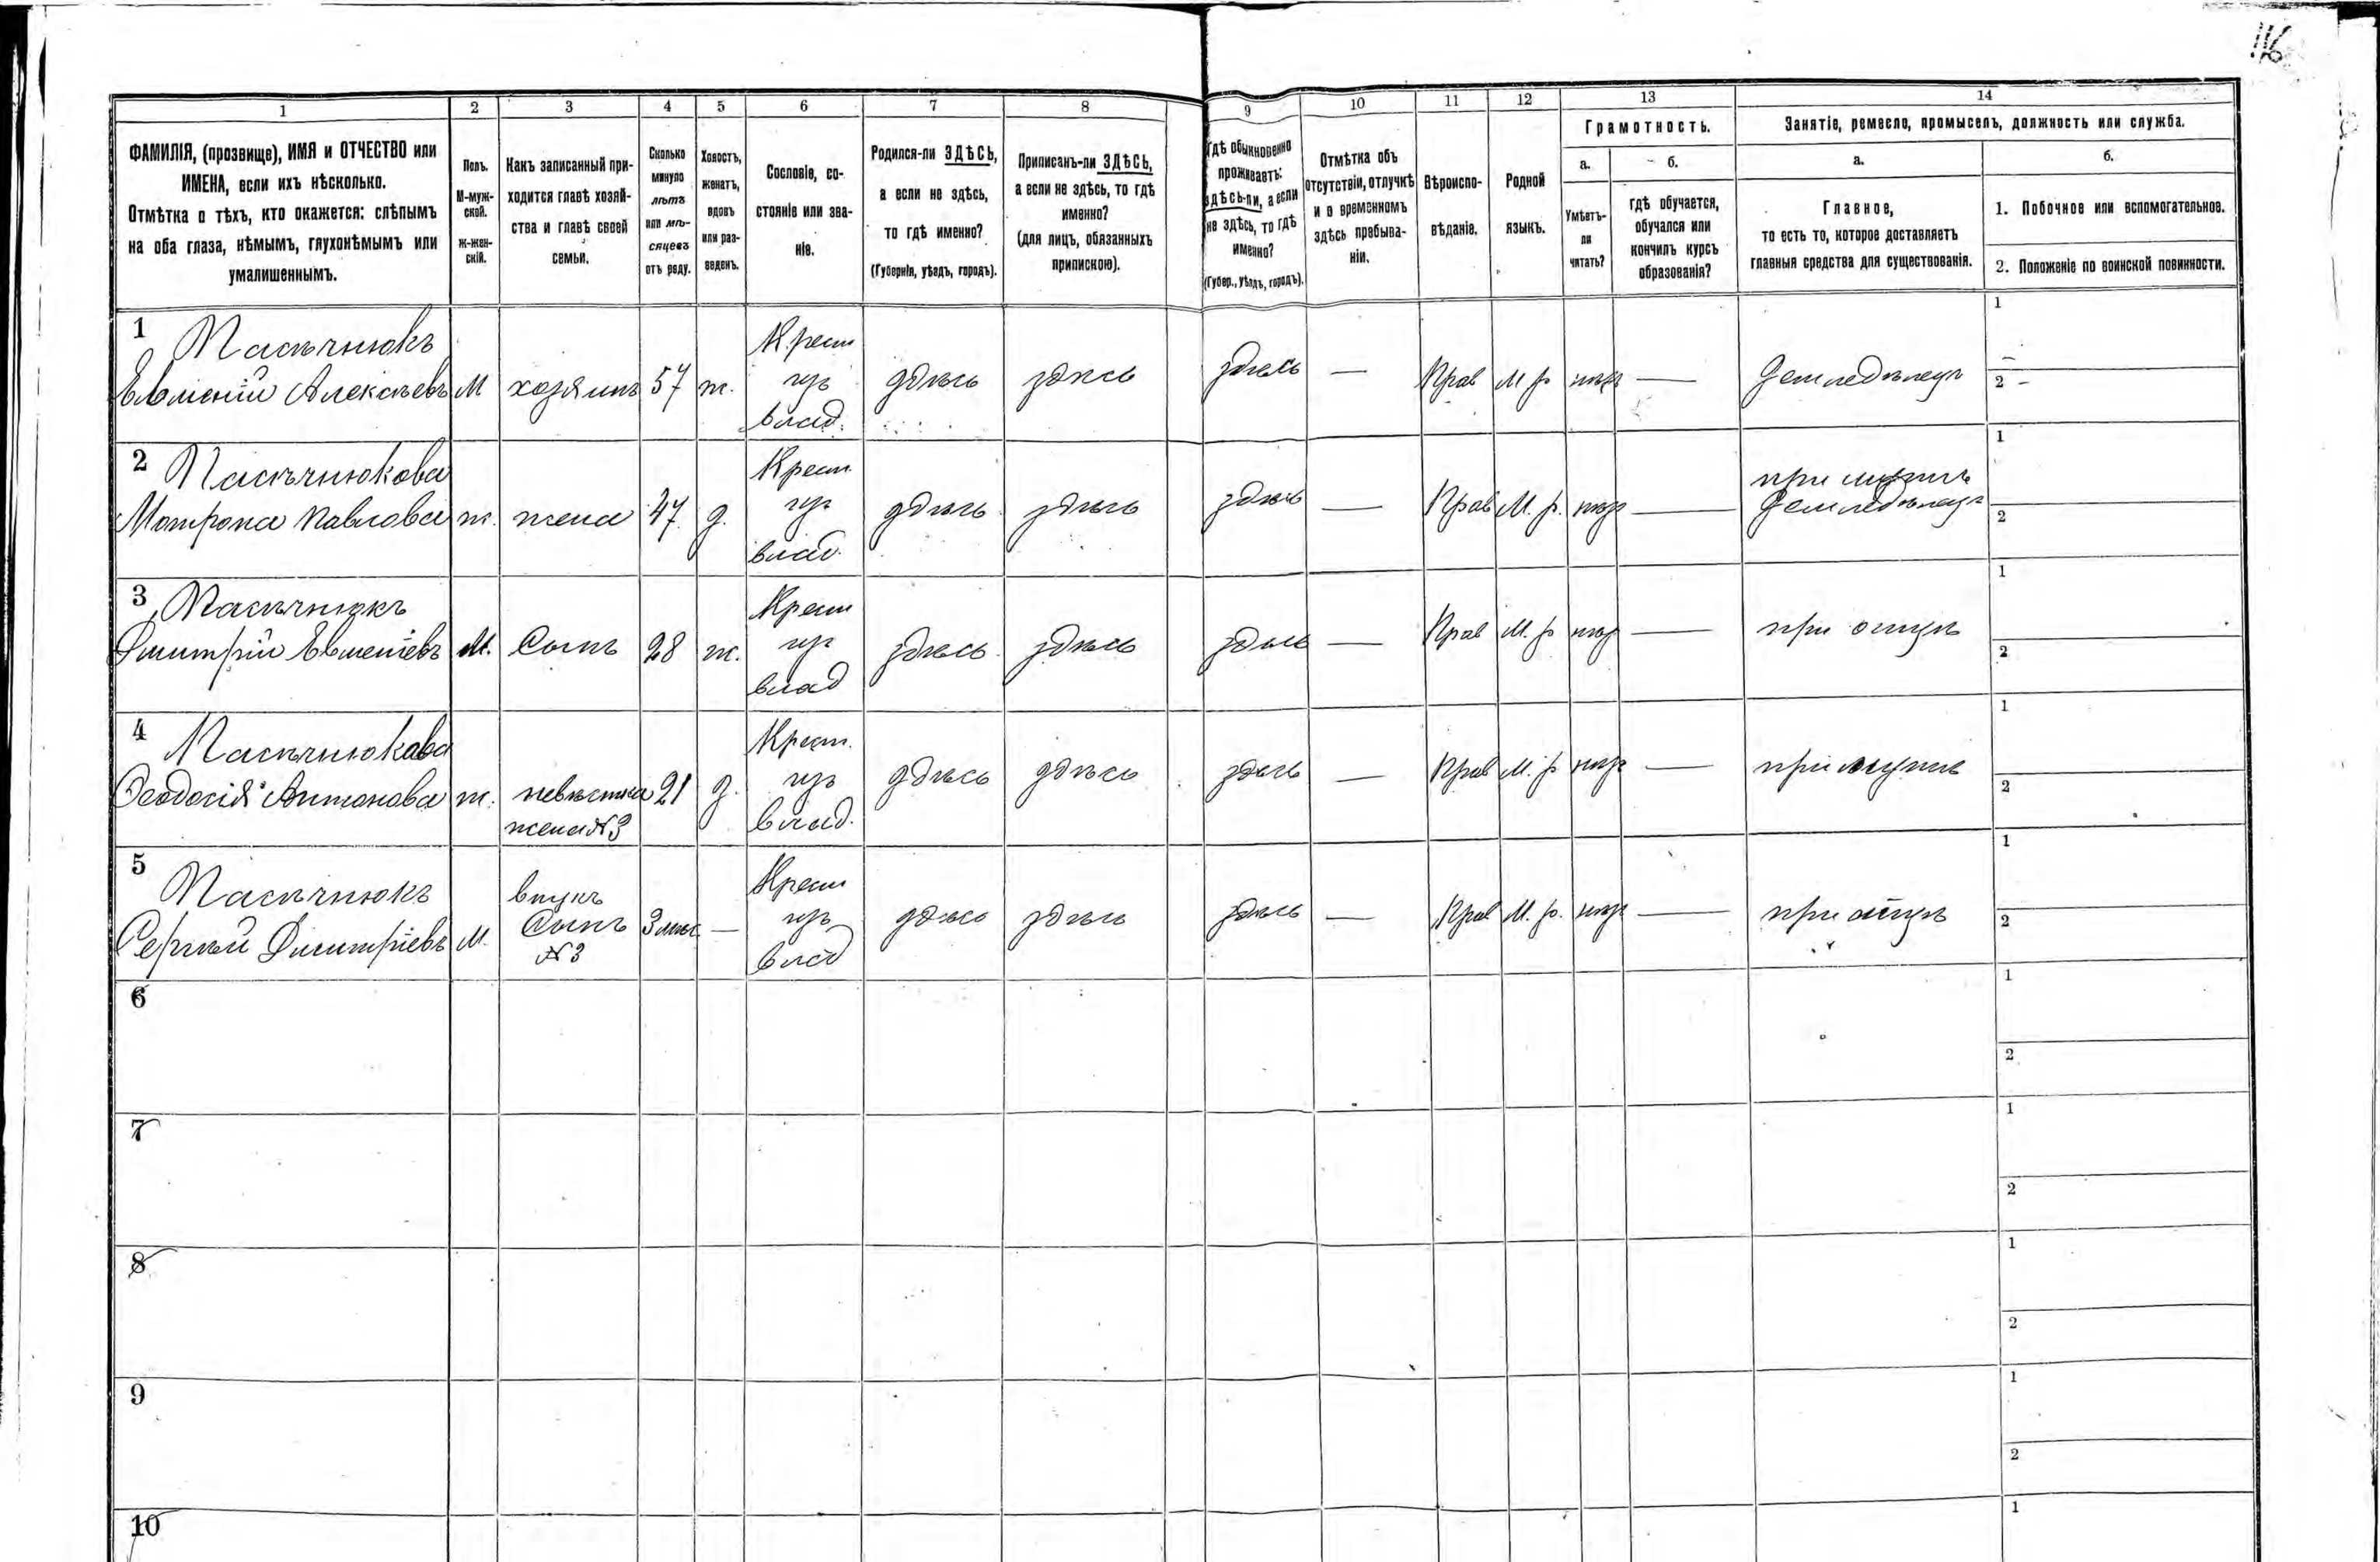 116
1 2 3 4 5 6 7 8 9 10 11 12 13 14
ФАМИЛІЯ, (прозвище), ИМЯ и ОТЧЕСТВО или
ИМЕНА, если ихъ нѣсколько.
Отмѣтка о тѣхъ, кто окажется: слѣпымъ
на оба глаза, нѣмымъ, глухонѣмымъ или
умалишеннымъ.
Полъ.
М-муж-
ской.
Ж-жен-
скій.
Какъ записанный при-
ходится главѣ хозяй-
ства и главѣ своей
семьи.
Сколько
минуло
лѣтъ
или мѣ-
сяцевъ
отъ роду.
Холостъ,
женатъ,
вдовъ
или раз-
веденъ.
Сословіе, со-
стояніе или зва-
ніе.
Родился-ли ЗДѢСЬ,
а если не здѣсь,
то гдѣ именно?
(Губернія, уѣздъ, городъ).
Приписанъ-ли ЗДѢСЬ,
а если не здѣсь, то гдѣ
именно?
(для лицъ, обязанныхъ
припискою).
Гдѣ обыкновенно
проживаетъ:
здѣсь-ли, а если
не здѣсь, то гдѣ
именно?
(Губер., уѣздъ, городъ).
Отмѣтка объ
отсутствіи, отлучкѣ
и о временномъ
здѣсь пребыва-
ніи.
Вѣроиспо-
вѣданіе.
Родной
языкъ.
Грамотность.
а.
Умѣетъ-
ли
читать?
б.
гдѣ обучается,
обучался или
кончилъ курсъ
образованія?
Занятіе, ремесло, промыселъ, должность или служба.
а.
Главное,
то есть то, которое доставляетъ
главныя средства для существованія.
б.
1. Побочное или вспомогательное.
2. Положеніе по воинской повинности.
1 Пасѣчнюкъ
Евменій Алексѣевъ М хозяинъ 57 ж. Крест изъ влад. здѣсь здѣсь здѣсь — Прав М р нѣтъ — Земледѣлецъ 1 — 2 -
2 Пасѣчнюкова
Мотрона Павлова ж. жена 47 з. Крест. изъ влад. здѣсь здѣсь здѣсь — Прав М. р. нѣтъ — при мужѣ земледѣлецъ 1 2
3 Пасѣчнюкъ
Димитрій Евменіевъ М. Сынъ 28 ж. Крест изъ влад здѣсь здѣсь здѣсь — Прав М. р нѣтъ — при отцѣ 1 2
4 Пасѣчнюкова
Ѳеодосія Антонова ж. невѣстка жена №3 21 з. Крест. изъ влад. здѣсь здѣсь здѣсь — Прав М. р нѣтъ — при мужѣ 1 2
5 Пасѣчнюкъ
Сергѣй Димитріевъ М. внукъ Сынъ №3 3 мѣс — Крест изъ влад здѣсь здѣсь здѣсь — Прав М. р. нѣтъ — при отцѣ 1 2
6 1 2
7 1 2
8 1 2
9 1 2
10 1